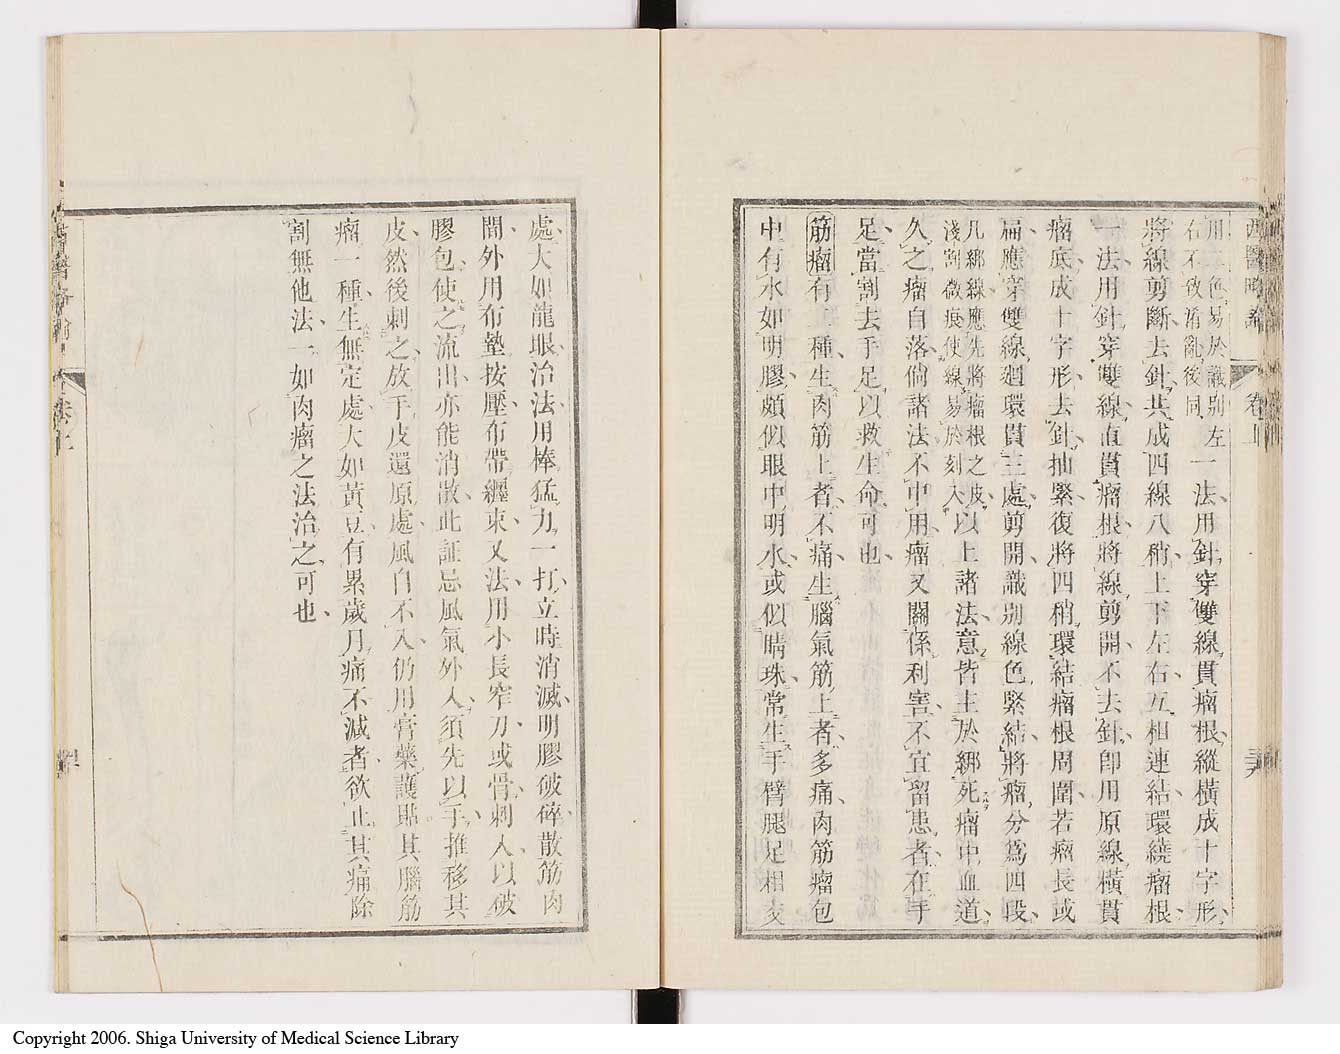 西醫略論 卷上 三六
用二色易於識別左
右不致淆亂後同
一法用針穿雙線貫瘤根縱橫成十字形
將線剪斷去針共成四線八稍上下左右互相連結環繞瘤根
一法用針穿雙線直貫瘤根將線剪開不去針卽用原線橫貫
瘤底成十字形去針抽緊復將四稍環結瘤根周圍若瘤長或
扁應穿雙線廻環貫三處剪開識別線色緊結將瘤分爲四段
凡綁線應先將瘤根之皮
淺割微痕使線易於刻入
以上諸法意皆主於綁死瘤中血道
久之瘤自落倘諸法不中用瘤又關係利害不宜留患者在手
足當割去手足以救生命可也
筋瘤有二種生肉筋上者不痛生腦氣筋上者多痛肉筋瘤包
中有水如明膠頗似眼中明水或似睛珠常生手臂腿足相交
處大如龍眼治法用棒猛力一打立時消滅明膠破碎散筋肉
間外用布墊按壓布帶纏束又法用小長窄刀或骨刺入以破
膠包使之流出亦能消散此証忌風氣外入須先以手推移其
皮然後刺之放手皮還原處風自不入仍用膏藥護貼其腦筋
瘤一種生無定處大如黃豆有累歲月痛不減者欲止其痛除
割無他法一如肉瘤之法治之可也
Copyright 2006. Shiga University of Medical Science Library